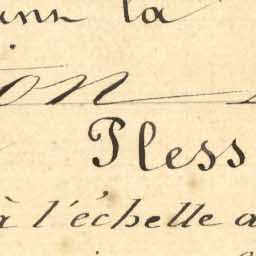 la
on
Pless
à l'échelle